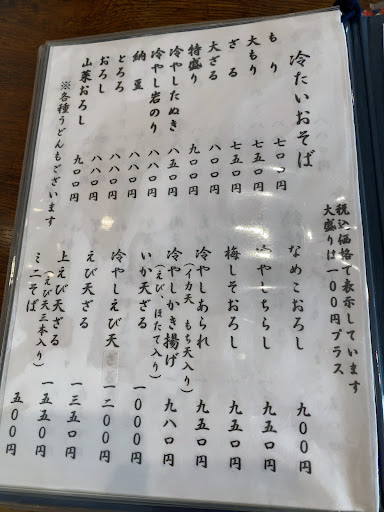 税込価格で表示しています
大盛りは一〇〇円プラス
冷たいおそば
もり 七〇〇円
大もり 七五〇円
ざる 七五〇円
大ざる 八〇〇円
特盛り 九〇〇円
冷やしたぬき 八五〇円
冷やし岩のり 八八〇円
納豆 八八〇円
とろろ 八八〇円
おろし 八八〇円
山菜おろし 九〇〇円
※各種うどんもございます
なめこおろし 九〇〇円
やしちらし 九五〇円
梅しそおろし 九五〇円
冷やしあられ 九五〇円
(イカ天 もち天入り)
冷やしかき揚げ 九八〇円
(えび、ほたて入り)
いか天ざる 一〇〇〇円
冷やしえび天 二〇〇円
えび天ざる 一三五〇円
上えび天ざる 一五五〇円
(えび天三本入り)
ミニそば 五〇〇円